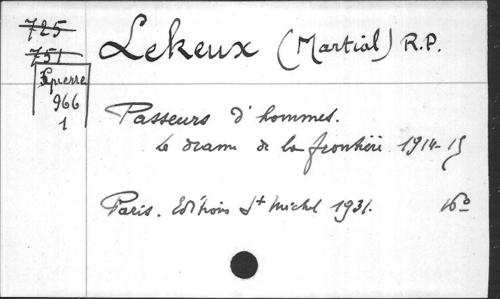 725
751
966
1
Lekeux (Martial) R.P.
Passeurs d'hommes.
Le drame de la frontière 1914-15
Paris. Editions St Michel 1931. 16°